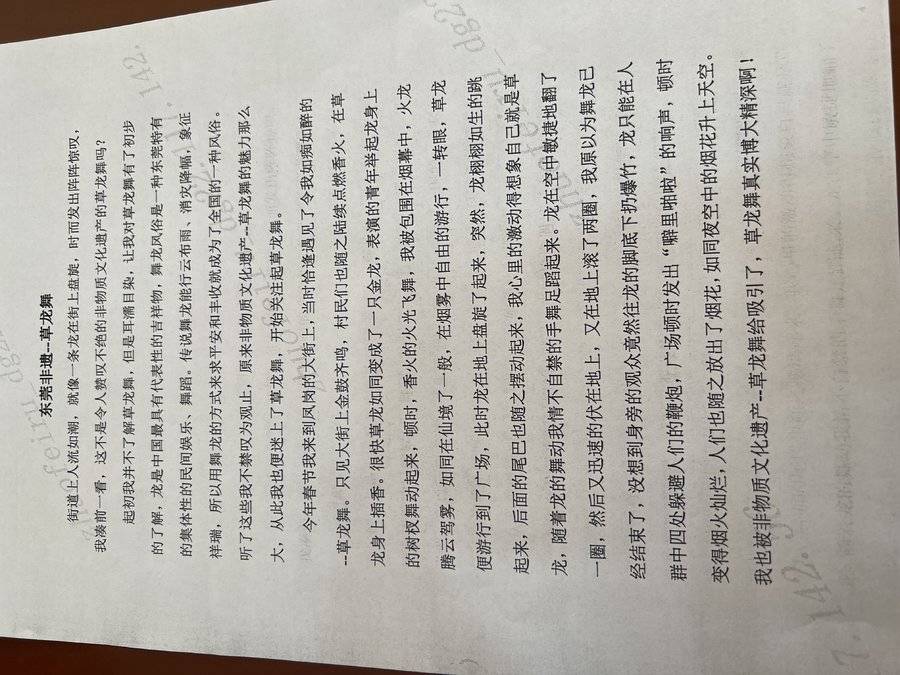 东莞非遗--草龙舞
街道上人流如潮，就像一条龙在街上盘旋，时而发出阵阵惊叹，
我凑前一看，这不是令人赞叹不绝的非物质文化遗产的草龙舞吗？
起初我并不了解草龙舞，但是耳濡目染，让我对草龙舞有了初步
的了解，龙是中国最具有代表性的吉祥物，舞龙风俗是一种东莞特有
的集体性的民间娱乐、舞蹈。传说舞龙能行云布雨、消灾降幅，象征
祥瑞，所以用舞龙的方式来求平安和丰收就成为了全国的一种风俗。
听了这些我不禁叹为观止，原来非物质文化遗产--草龙舞的魅力那么
大，从此我也便迷上了草龙舞，开始关注起草龙舞。
今年春节我来到凤岗的大街上，当时恰逢遇见了令我如痴如醉的
--草龙舞。只见大街上金鼓齐鸣，村民们也随之陆续点燃香火，在草
龙身上插香。很快草龙如同变成了一只金龙，表演的青年举起龙身上
的树杈舞动起来，顿时，香火的火光飞舞，我被包围在烟幕中，火龙
腾云驾雾，如同在仙境了一般，在烟雾中自由的游行，一转眼，草龙
便游行到了广场，此时龙在地上盘旋了起来，突然，龙栩栩如生的跳
起来，后面的尾巴也随之摆动起来，我心里的激动得想象自己就是草
龙，随着龙的舞动我情不自禁的手舞足蹈起来。龙在空中敏捷地翻了
一圈，然后又迅速的伏在地上，又在地上滚了两圈，我原以为舞龙已
经结束了，没想到身旁的观众竟然往龙的脚底下扔爆竹，龙只能在人
群中四处躲避人们的鞭炮，广场顿时发出“噼里啪啦”的响声，顿时
变得烟火灿烂，人们也随之放出了烟花，如同夜空中的烟花升上天空。
我也被非物质文化遗产--草龙舞给吸引了，草龙舞真实博大精深啊！